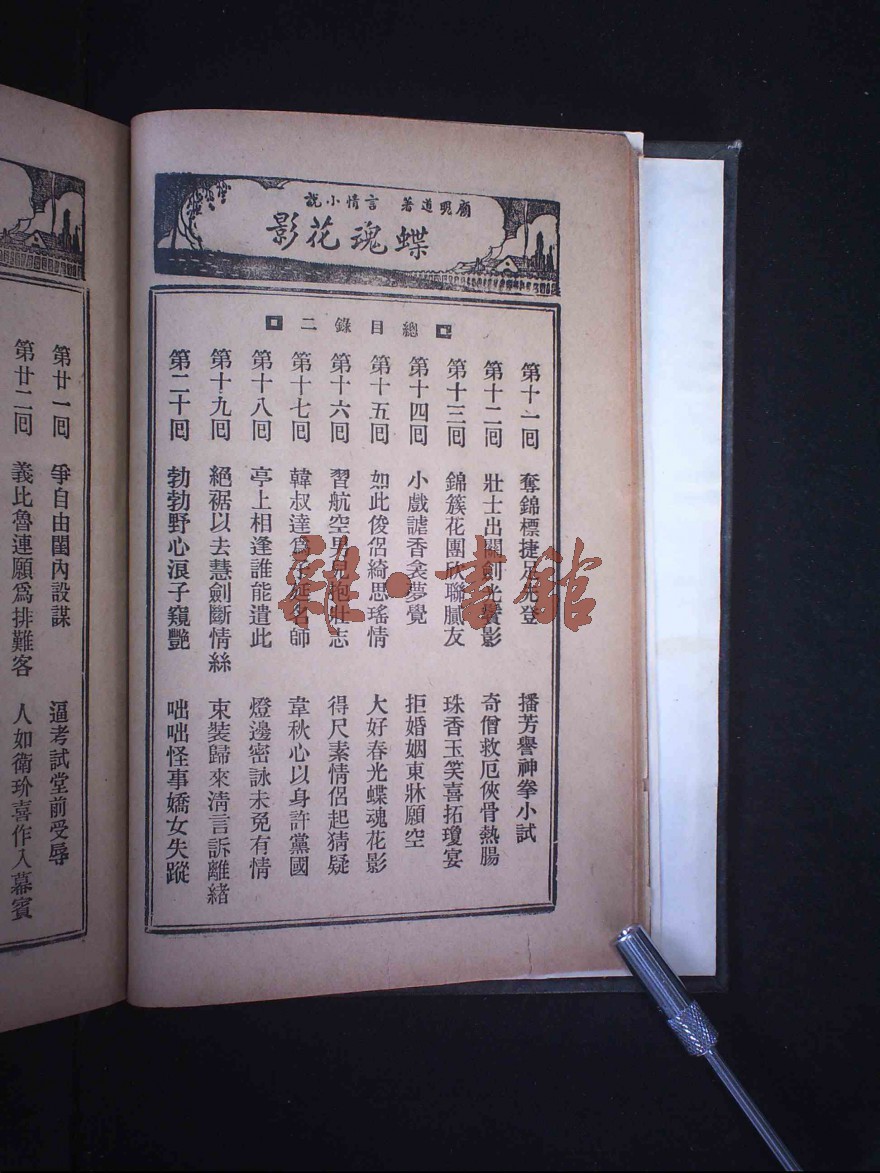 顧明道著 言情小說
蝶魂花影
總目錄二
第十一回 奪錦標捷足先登 播芳譽神拳小試
第十二回 壯士出關劍光鬢影 奇僧救厄俠骨熱腸
第十三回 錦簇花團欣聯膩友 珠香玉笑喜拓瓊宴
第十四回 小戲謔香衾夢覺 拒婚姻東牀願空
第十五回 如此俊侶綺思瑤情 大好春光蝶魂花影
第十六回 習航空男兒抱壯志 得尺素情侶起猜疑
第十七回 韓叔達爲子延名師 韋秋心以身許黨國
第十八回 亭上相逢誰能遣此 燈邊密詠未免有情
第十九回 絕裾以去慧劍斷情絲 束裝歸來淸言訴離緒
第二十回 勃勃野心浪子窺艷 咄咄怪事嬌女失蹤
第廿一回 爭自由閨內設謀 逼考試堂前受辱
第廿二回 義比魯連願爲排難客 人如衛玠喜作入幕賓
雜·書館